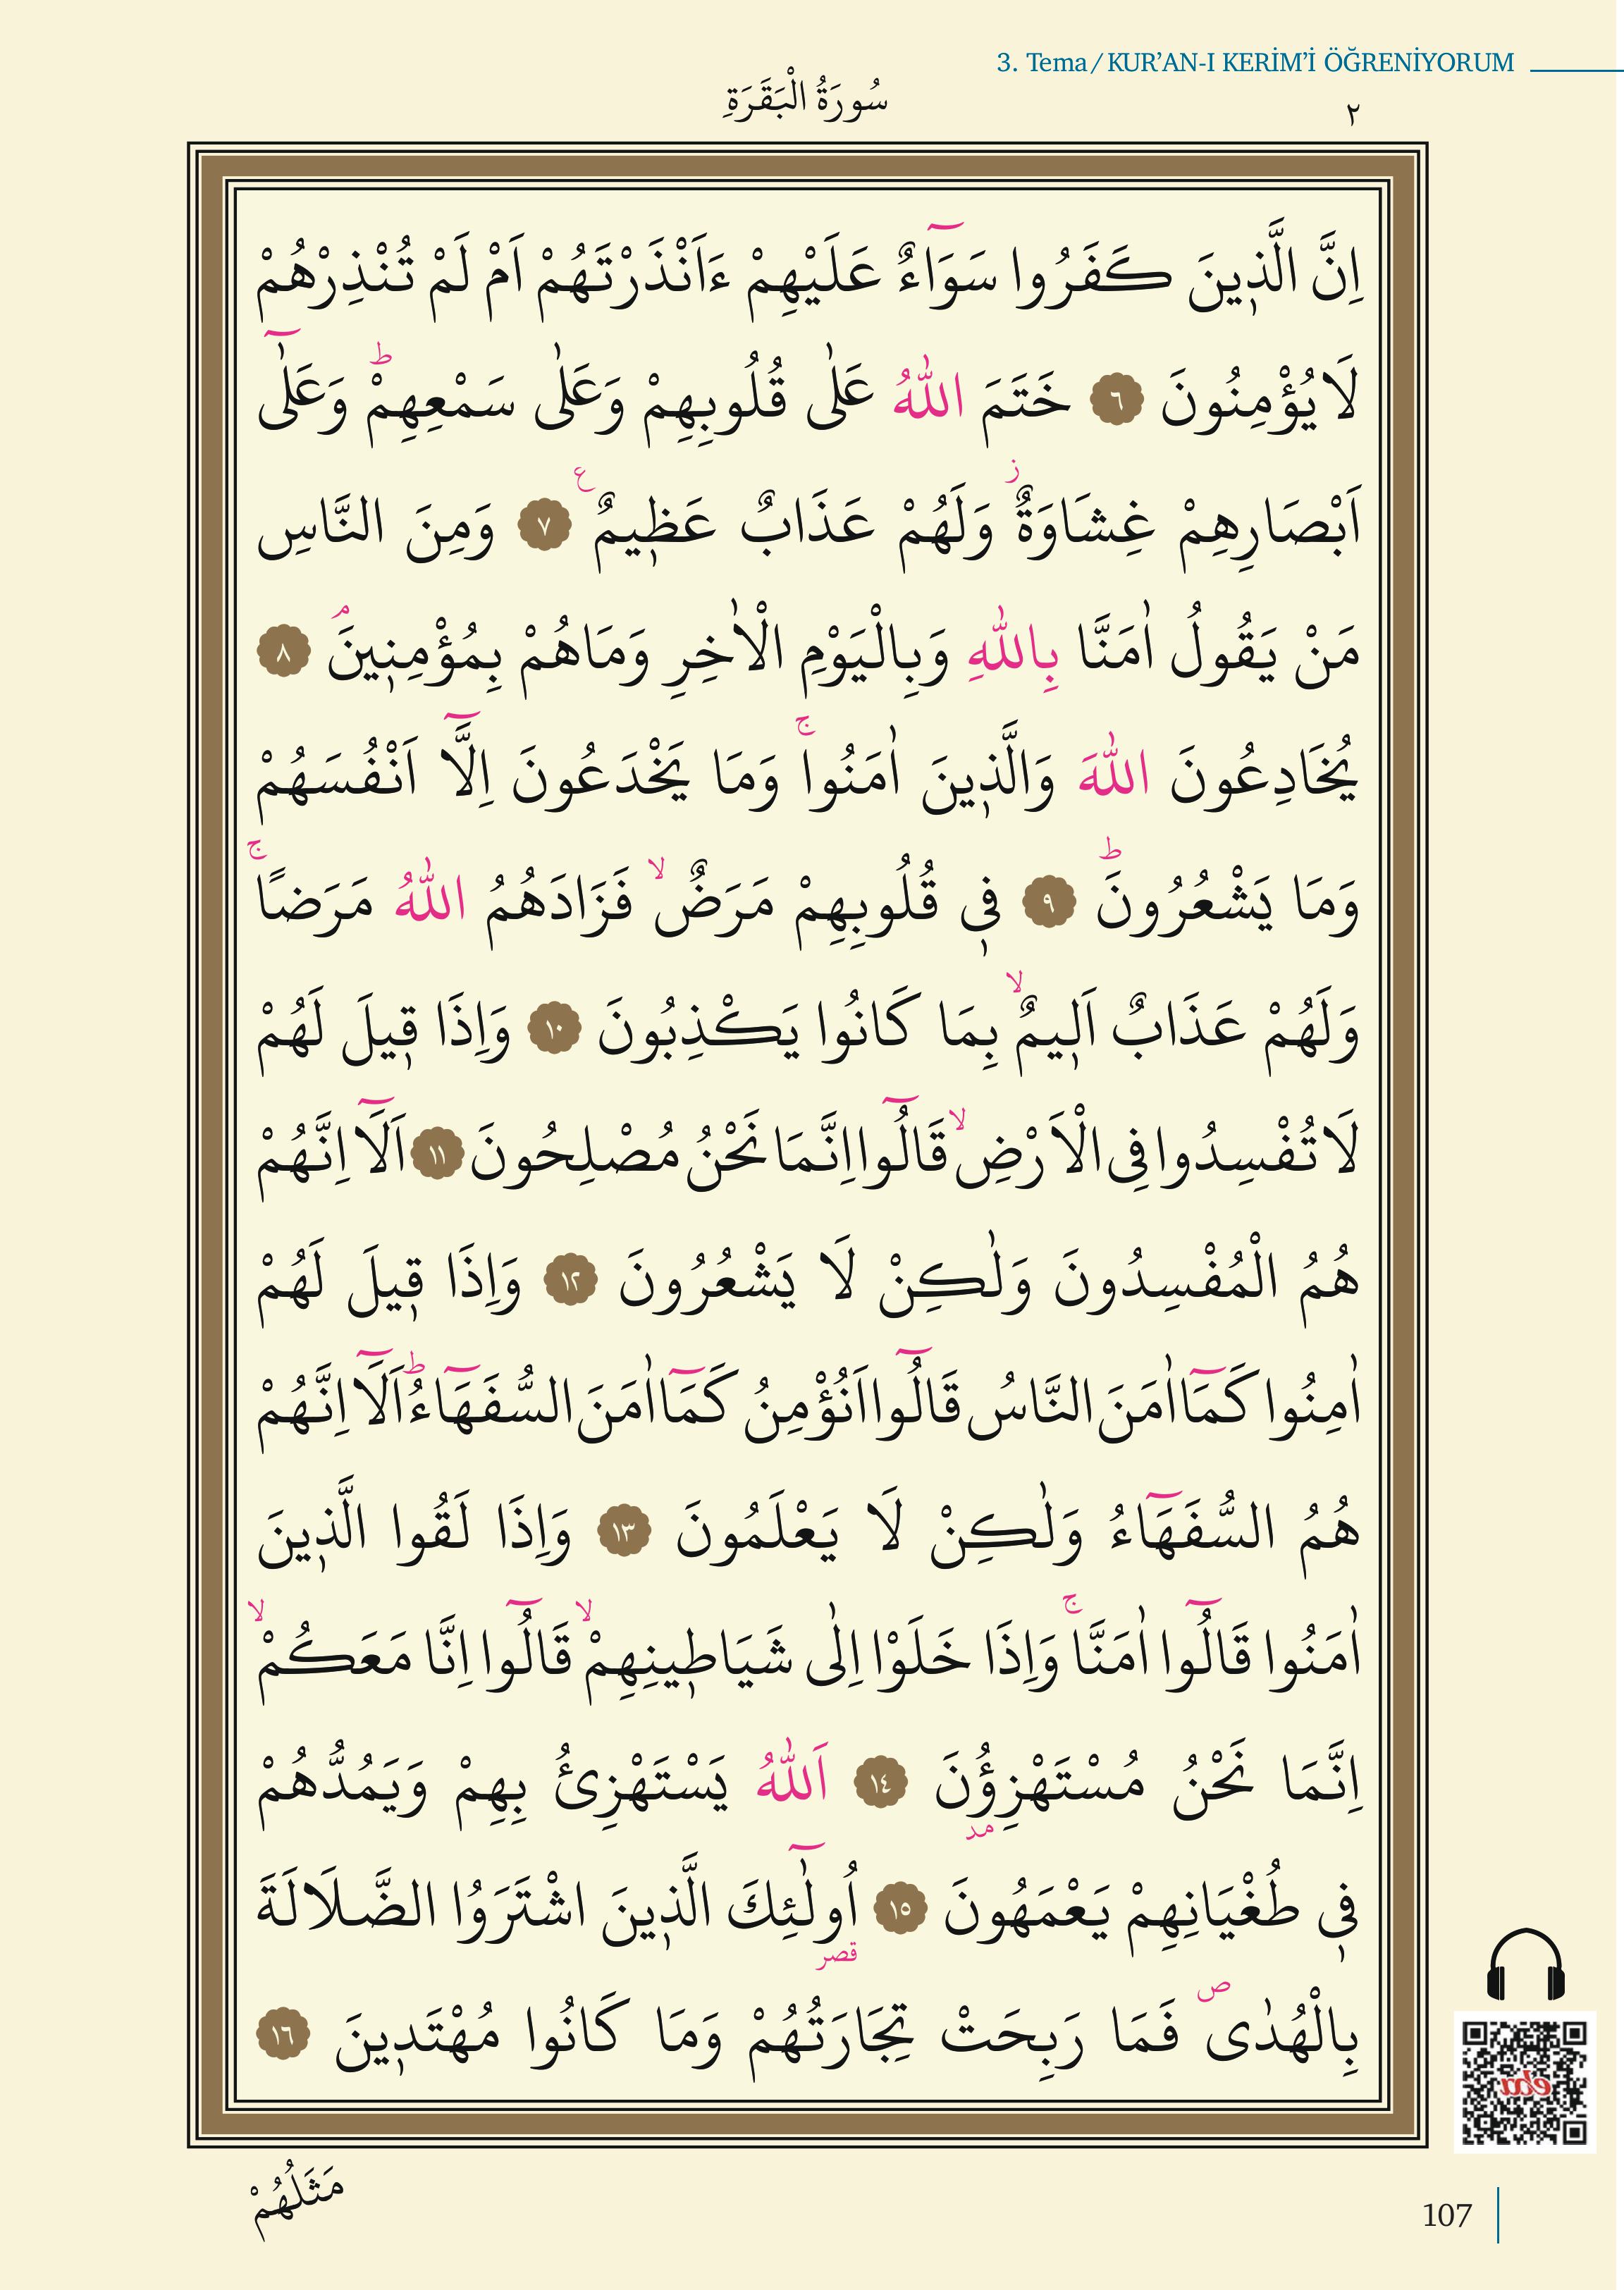 3. Tema / KUR’AN-I KERİM’İ ÖĞRENİYORUM
سُورَةُ الْبَقَرَةِ
٢
اِنَّ الَّذ۪ينَ كَفَرُوا سَوَٓاءٌ عَلَيْهِمْ ءَاَنْذَرْتَهُمْ اَمْ لَمْ تُنْذِرْهُمْ
لَا يُؤْمِنُونَ ٦ خَتَمَ اللّٰهُ عَلٰى قُلُوبِهِمْ وَعَلٰى سَمْعِهِمْۜ وَعَلٰٓى
اَبْصَارِهِمْ غِشَاوَةٌۘ وَلَهُمْ عَذَابٌ عَظ۪يمٌ ع ٧ وَمِنَ النَّاسِ
مَنْ يَقُولُ اٰمَنَّا بِاللّٰهِ وَبِالْيَوْمِ الْاٰخِرِ وَمَاهُمْ بِمُؤْمِن۪ينَۢ ٨
يُخَادِعُونَ اللّٰهَ وَالَّذ۪ينَ اٰمَنُواۚ وَمَا يَخْدَعُونَ اِلَّٓا اَنْفُسَهُمْ
وَمَا يَشْعُرُونَۜ ٩ ف۪ى قُلُوبِهِمْ مَرَضٌۙ فَزَادَهُمُ اللّٰهُ مَرَضًاۚ
وَلَهُمْ عَذَابٌ اَل۪يمٌۙ بِمَا كَانُوا يَكْذِبُونَ ١٠ وَاِذَا ق۪يلَ لَهُمْ
لَا تُفْسِدُوا فِى الْاَرْضِۙ قَالُٓوا اِنَّمَا نَحْنُ مُصْلِحُونَ ١١ اَلَٓا اِنَّهُمْ
هُمُ الْمُفْسِدُونَ وَلٰكِنْ لَا يَشْعُرُونَ ١٢ وَاِذَا ق۪يلَ لَهُمْ
اٰمِنُوا كَمَٓا اٰمَنَ النَّاسُ قَالُٓوا اَنُؤْمِنُ كَمَٓا اٰمَنَ السُّفَهَٓاءُۜ اَلَٓا اِنَّهُمْ
هُمُ السُّفَهَٓاءُ وَلٰكِنْ لَا يَعْلَمُونَ ١٣ وَاِذَا لَقُوا الَّذ۪ينَ
اٰمَنُوا قَالُٓوا اٰمَنَّاۚ وَاِذَا خَلَوْا اِلٰى شَيَاط۪ينِهِمْۙ قَالُٓوا اِنَّا مَعَكُمْۙ
اِنَّمَا نَحْنُ مُسْتَهْزِؤُ۫نَ ١٤ اَللّٰهُ يَسْتَهْزِئُ بِهِمْ وَيَمُدُّهُمْ
مد
ف۪ى طُغْيَانِهِمْ يَعْمَهُونَ ١٥ اُولٰٓئِكَ الَّذ۪ينَ اشْتَرَوُا الضَّلَالَةَ
قصر
بِالْهُدٰىۖ فَمَا رَبِحَتْ تِجَارَتُهُمْ وَمَا كَانُوا مُهْتَد۪ينَ ١٦
eba
مَثَلُهُمْ
107